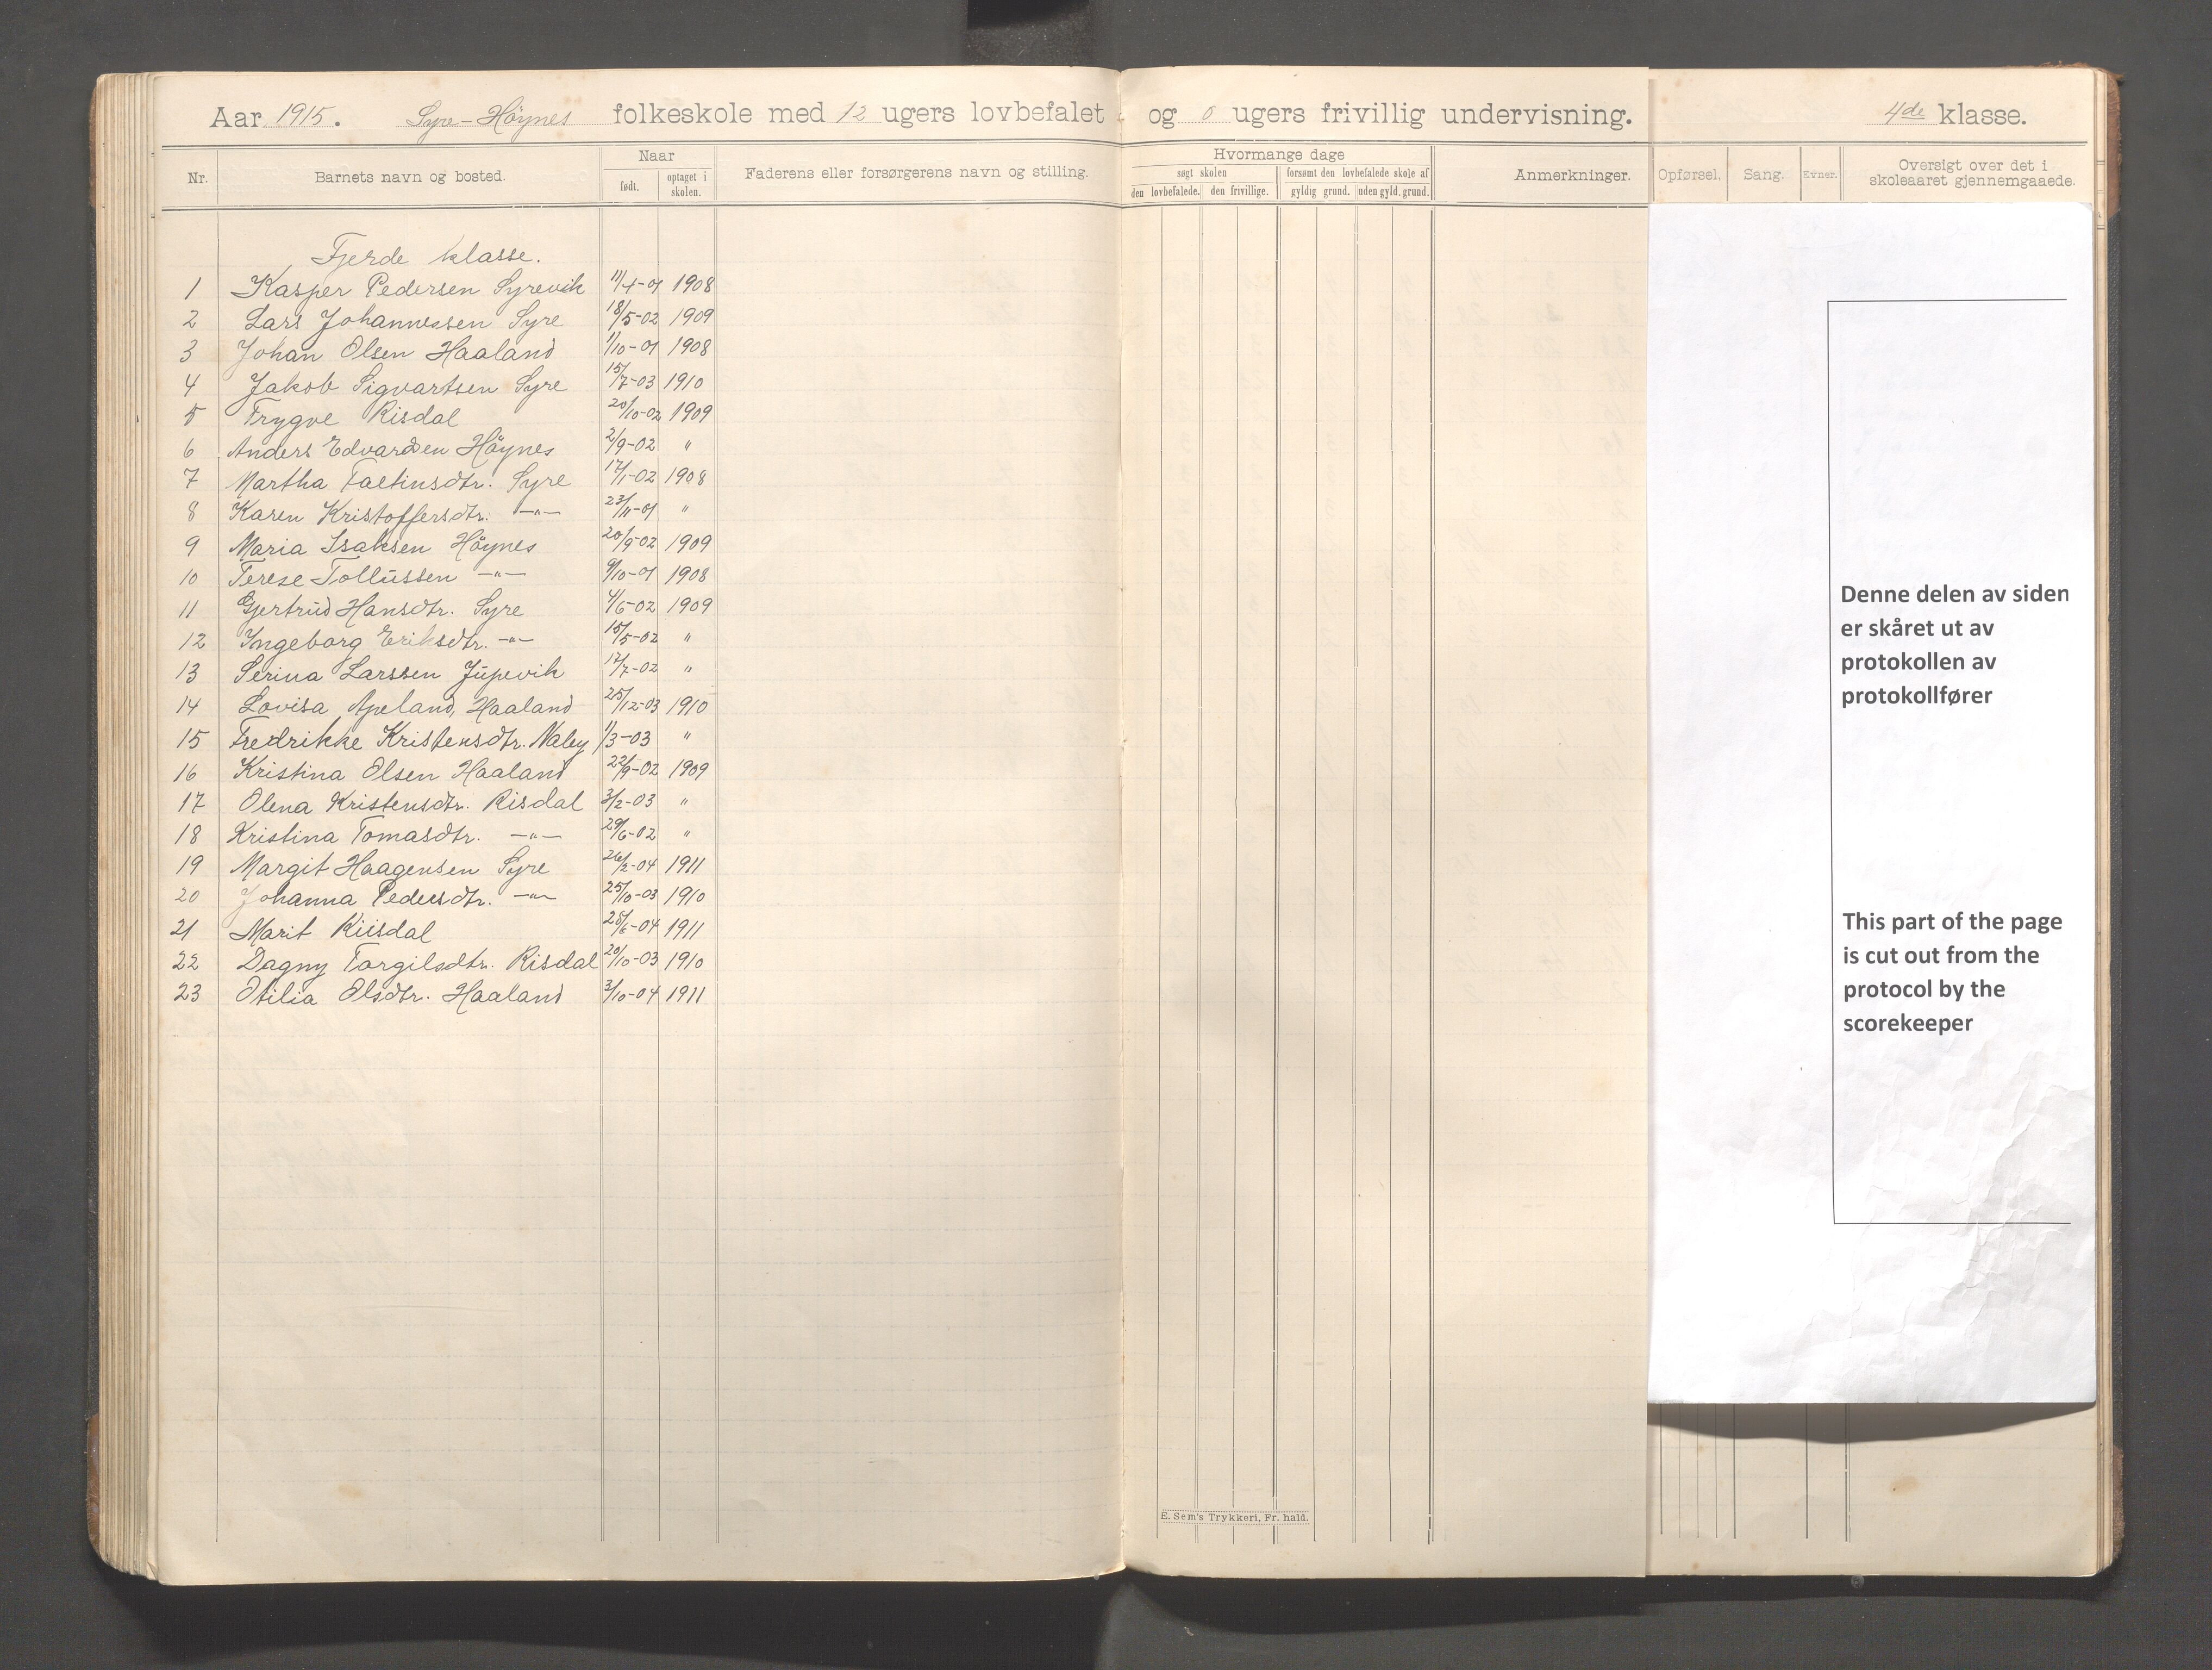 Aar 1915. Syre-Höynes folkeskole med 12 ugers lovbefalet og 0 ugers frivillig undervisning. 4de klasse.
Nr. Barnets navn og bosted. Naar født. optaget i skolen. Faderens eller forsørgerens navn og stilling. Hvormange dage søgt skolen den lovbefalede. den frivillige. forsømt den lovbefalede skole af gyldig grund. uden gyld. grund. Anmerkninger. Opførsel. Sang. Evner. Oversigt over det i skoleaaret gjennemgaaede.
Fjerde klasse.
1 Kasper Pedersen Syrevik 11/4-01 1908
2 Lars Johannessen Syre 18/5-02 1909
3 Johan Olsen Haaland 1/10-01 1908
4 Jakob Sigvartsen Syre 15/7-03 1910
5 Trygve Risdal 20/10-02 1909
6 Anders Edvardsen Höynes 2/9-02 "
7 Martha Faltinsdtr. Syre 17/1-02 1908
8 Karen Kristoffersdtr. -"- 23/11-01 "
9 Maria Isaksen Höynes 20/9-02 1909
10 Terese Tollüssen -"- 9/10-01 1908
11 Gjertrüd Hansdtr. Syre 4/6-02 1909
12 Ingeborg Eriksdtr. -"- 15/5-02 "
13 Serina Larssen Jüpevik 17/7-02 "
14 Lovisa Apeland, Haaland 25/12-03 1910
15 Fredrikke Kristensdtr. Naley 1/3-03 "
16 Kristina Olsen Haaland 22/9-02 1909
17 Olena Kristensdtr. Risdal 3/2-03 "
18 Kristina Tomasdtr. -"- 29/6-02 "
19 Margit Haagensen Syre 26/2-04 1911
20 Johanna Pedersdtr. -"- 25/10-03 1910
21 Marit Risdal 25/6-04 1911
22 Dagny Torgilsdtr. Risdal 20/10-03 1910
23 Otilia Olsdtr. Haaland 3/10-04 1911
E. Sem's Trykkeri, Fr. hald.
Denne delen av siden
er skåret ut av
protokollen av
protokollfører
This part of the page
is cut out from the
protocol by the
scorekeeper